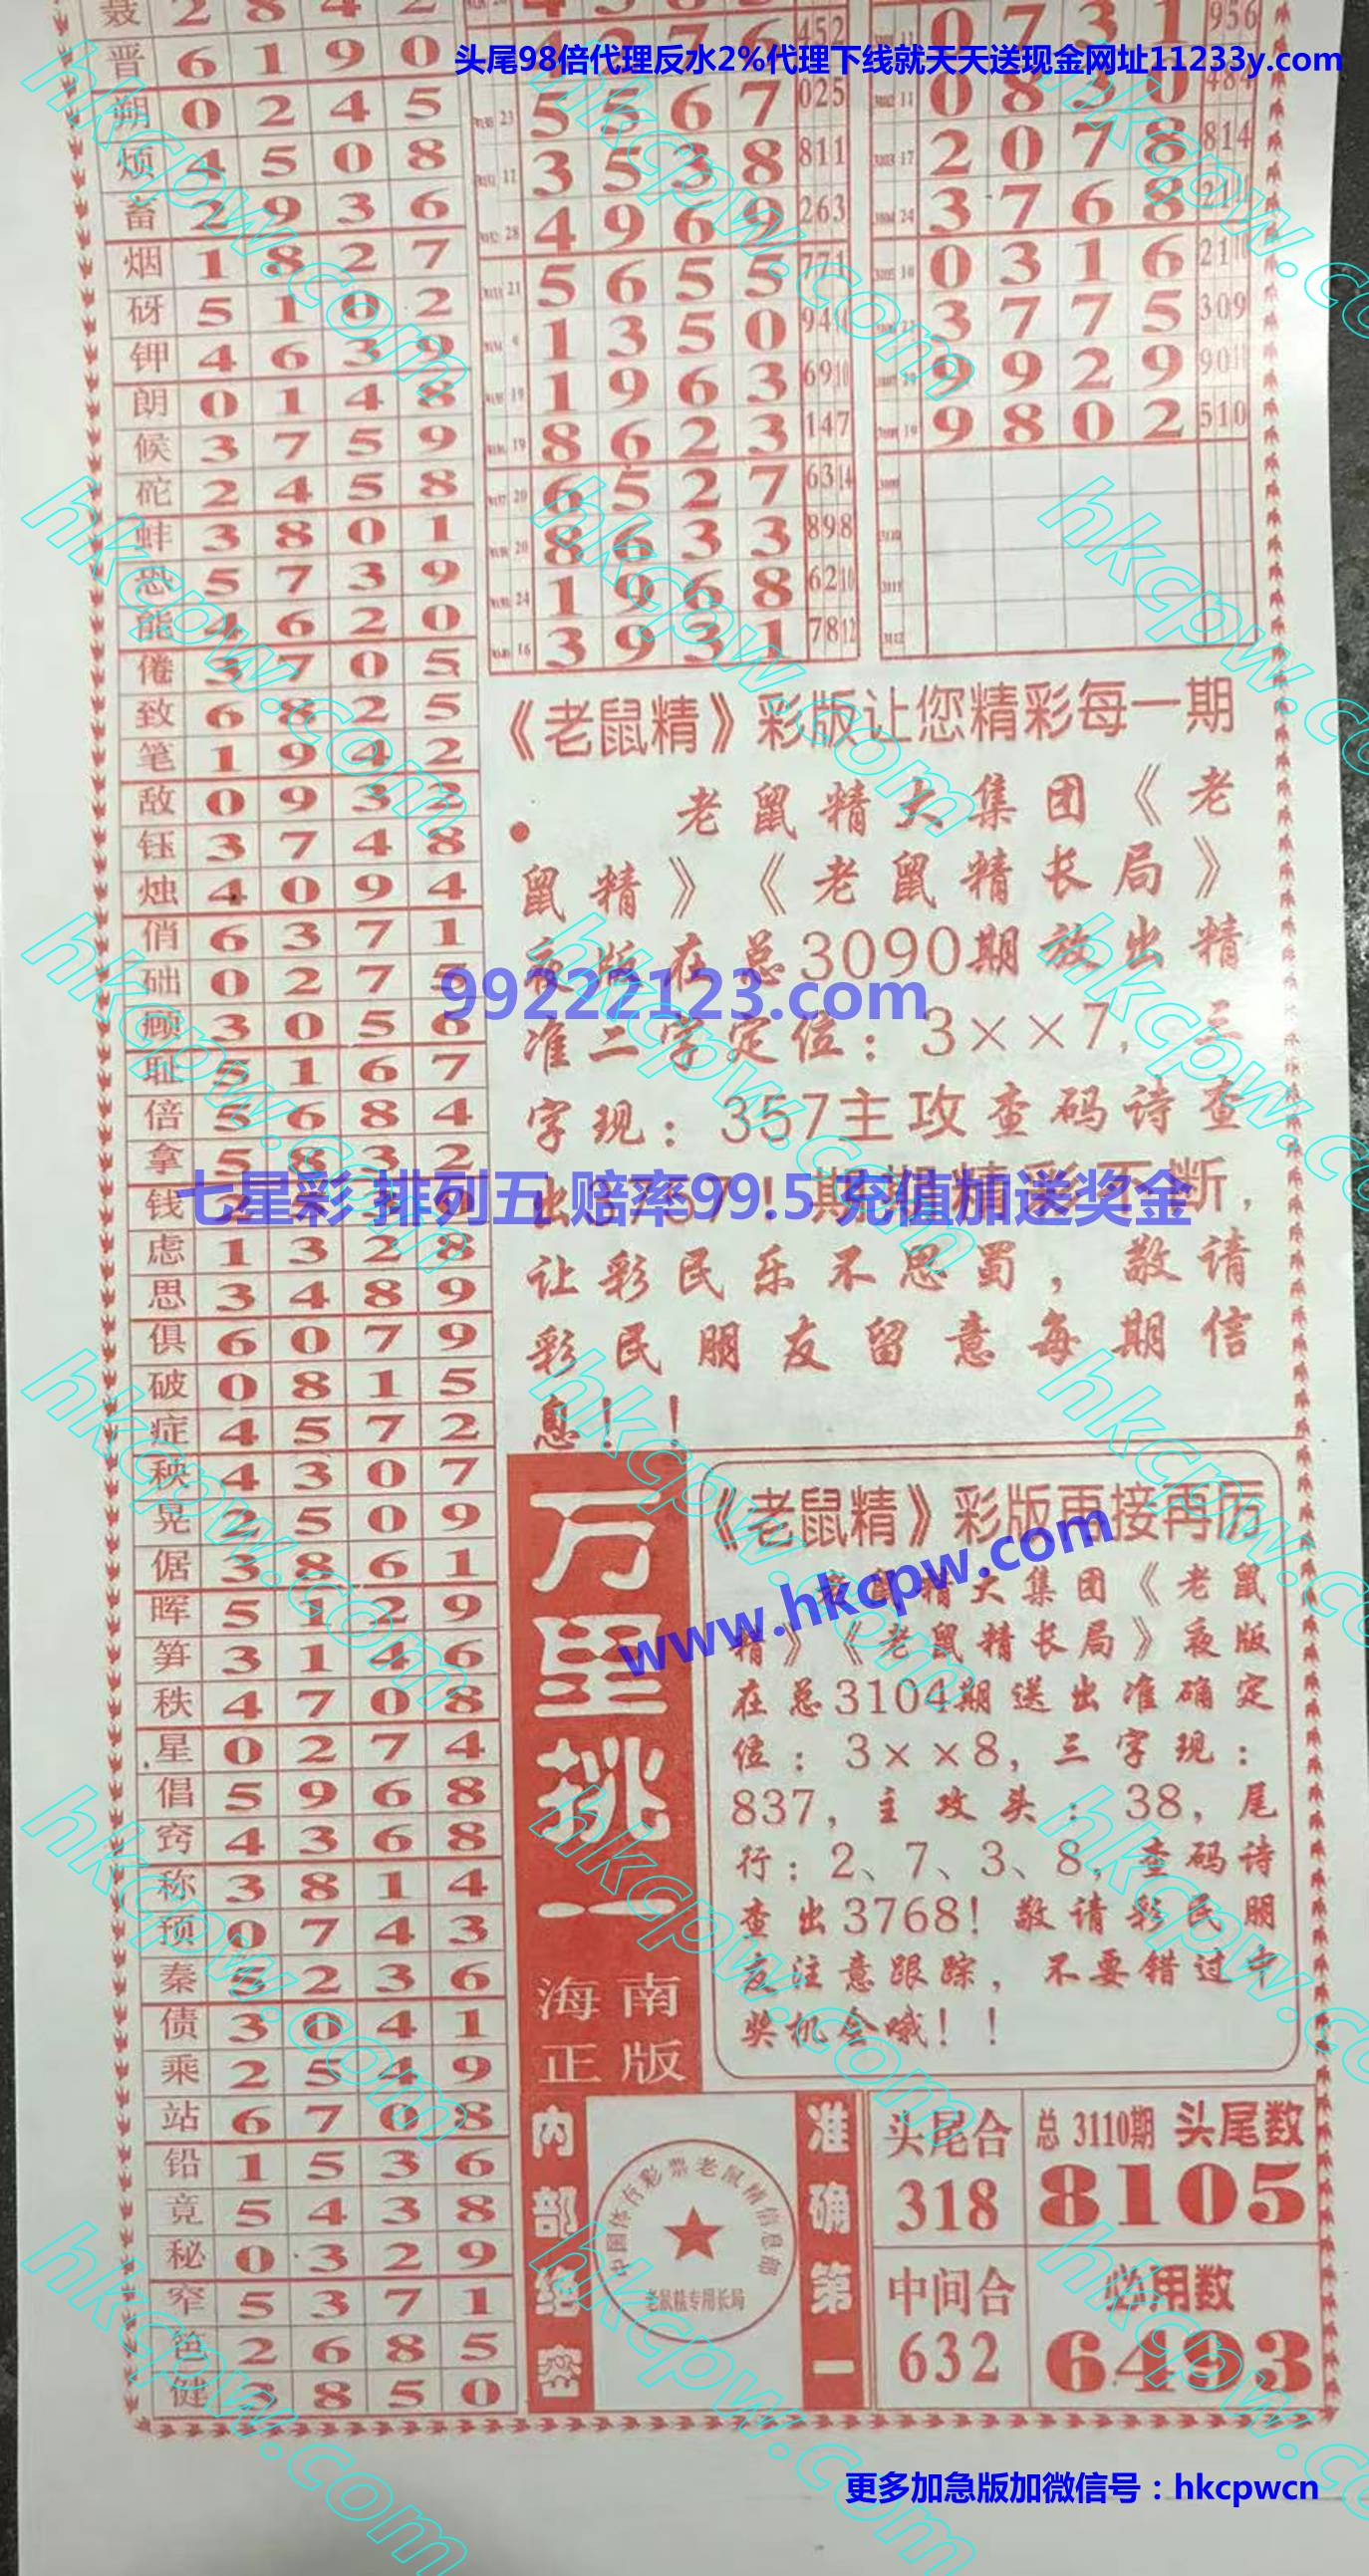 头尾98倍代理反水2%代理下线就天天送现金网址11233y.com
晋 6 1 9 0
朔 0 2 4 5
烦 4 5 0 8
畜 2 9 3 6
烟 1 8 2 7
砑 5 1 0 2
钾 4 6 3 9
朗 0 1 4 8
候 3 7 5 9
砣 2 4 5 8
蚌 3 8 0 1
恐 5 7 3 9
能 4 6 2 0
倦 3 7 0 5
致 6 8 2 5
笔 1 9 4 2
敌 0 9 3 2
钰 3 7 4 8
烛 4 0 9 4
俏 6 3 7 1
础 0 2 7 5
顾 3 0 5 6
耻 5 1 6 7
倍 5 6 8 4
拿 5 8 3 2
钱 2
虑 1 3 2 8
思 3 4 8 9
俱 6 0 7 9
破 0 8 1 5
症 4 5 7 2
秧 4 3 0 7
晃 2 5 0 9
倨 3 8 6 1
晖 5 1 2 9
笋 3 1 4 6
秩 4 7 0 8
星 0 2 7 4
倡 5 9 6 8
窍 4 3 6 8
称 3 8 1 4
预 0 7 4 3
秦 5 2 3 6
债 3 0 4 1
乘 2 5 4 9
站 6 7 0 8
铅 1 5 3 6
竟 5 4 3 8
秘 0 3 2 9
窄 5 3 7 1
笆 2 6 8 5
健 3 8 5 0
23 5 5 6 7 025
12 3 5 3 8 811
28 4 9 6 9 263
21 5 6 5 5
1 3 5 0
1 9 6 3 6910
19 8 6 2 3 147
20 6 5 2 7 6314
20 8 6 3 3 898
24 1 9 6 8 6210
16 3 9 3 1 7812
0 7 3 1 956
11 0 8 3 0 484
17 2 0 7 8 814
24 3 7 6 8
0 3 1 6
3 7 7 5 309
9 9 2 9
9 8 0 2 510
《老鼠精》彩版让您精彩每一期
老鼠精大集团《老
鼠精》《老鼠精长局》
夜版在总3090期放出精
准二字定位：3××7，三
字现：357主攻查码诗查
出3737！期期精彩不断，
让彩民乐不思蜀，敬请
彩民朋友留意每期信
息！！
99222123.com
七星彩 排列五 赔率99.5 充值加送奖金
万里挑一
海南
正版
《老鼠精》彩版再接再厉
老鼠精大集团《老鼠
精》《老鼠精长局》夜版
在总3104期送出准确定
位：3××8，三字现：
837，主攻头：38，尾
行：2、7、3、8，查码诗
查出3768！敬请彩民朋
友注意跟踪，不要错过中
奖机会哦！！
www.hkcpw.com
内部绝密
中国体育彩票老鼠精信息部
老鼠精专用长局
准确第一
头尾合
318
总 3110期 头尾数
8105
中间合
632
必用数
6493
更多加急版加微信号：hkcpwcn
hkcpw.com